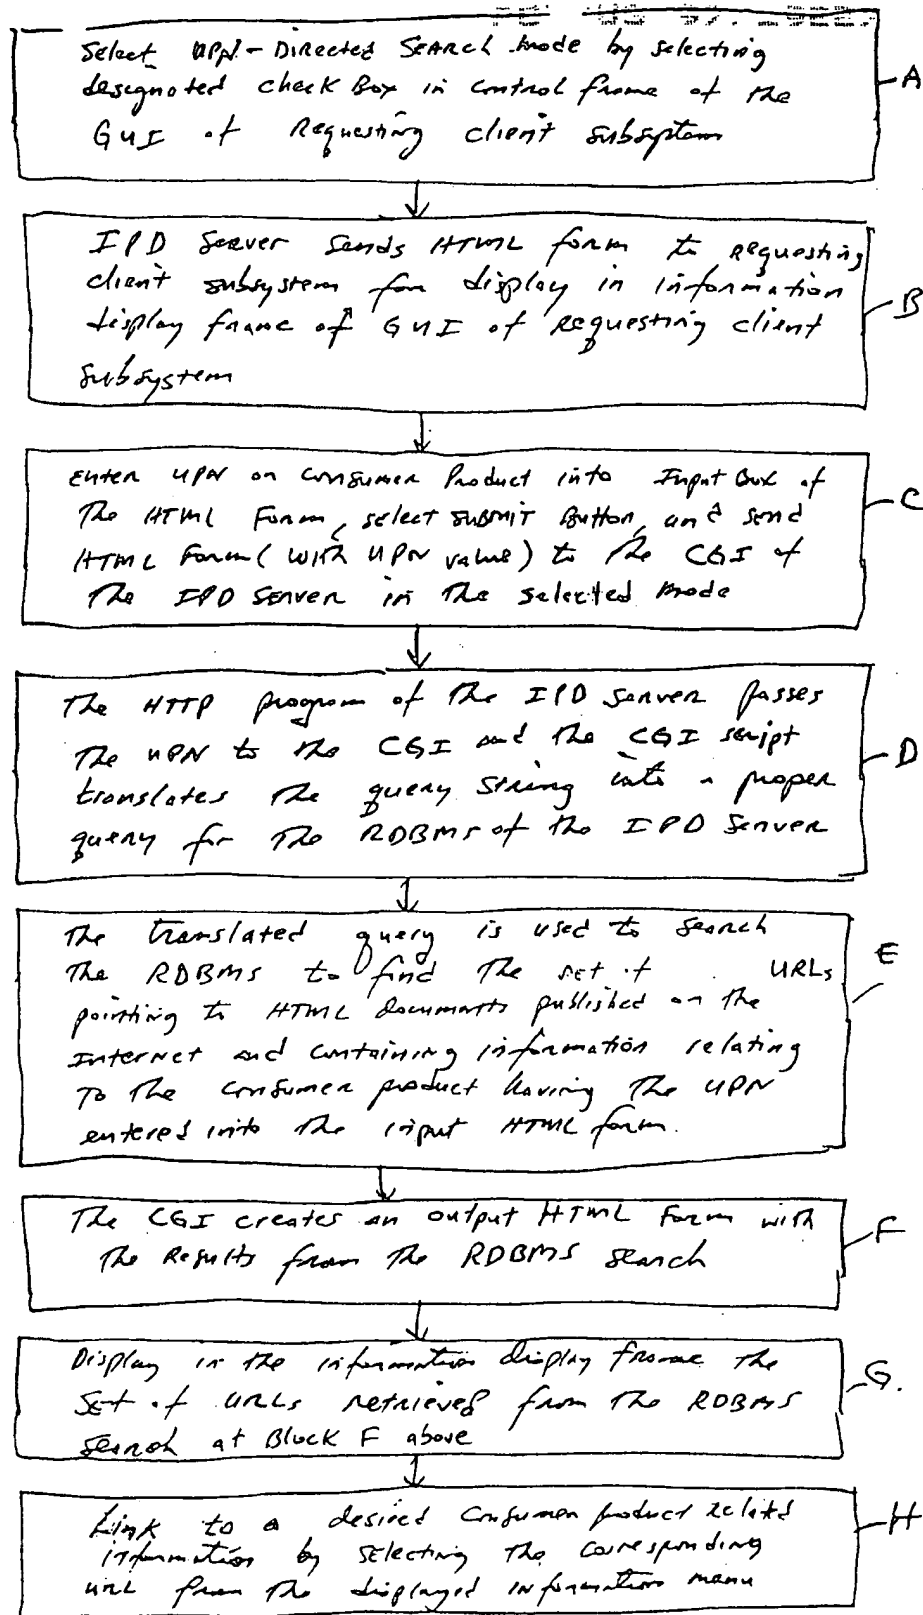 Select UPN-Directed Search mode by selecting
designated check Box in control frame of the
GUI of Requesting client subsystem
A
IPD Server sends HTML form to requesting
client subsystem for display in information
display frame of GUI of requesting client
subsystem
B
Enter UPN on consumer Product into Input Box of
The HTML Form, select SUBMIT Button, and send
HTML Form (with UPN value) to the CGI of
The IPD Server in the selected mode
C
The HTTP program of the IPD Server passes
The UPN to the CGI and the CGI script
translates the query string into a proper
query for the RDBMS of the IPD Server
D
The translated query is used to search
the RDBMS to find the set of URLs
pointing to HTML documents published on the
Internet and containing information relating
To the consumer product having the UPN
entered into the input HTML form.
E
The CGI creates an output HTML Form with
the Results from the RDBMS search
F
Display in the information display frame the
Set of URLs retrieved from the RDBMS
Search at Block F above
G.
Link to a desired consumer product related
information by selecting the corresponding
URL from the displayed information menu
H